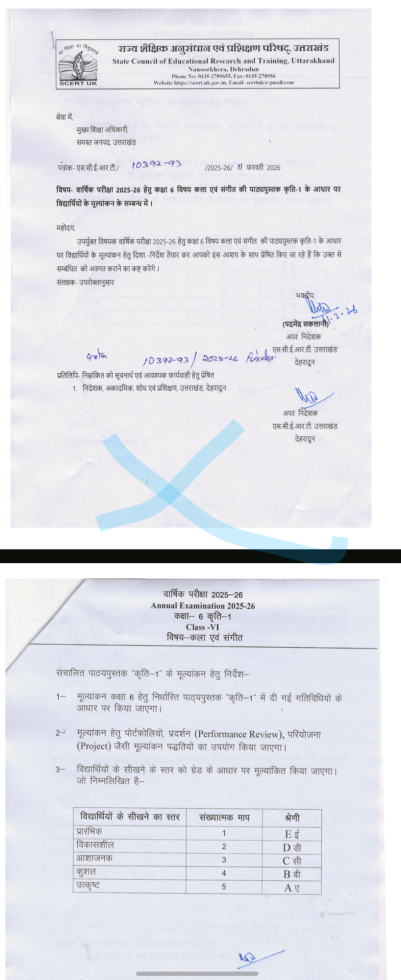 राज्य शैक्षिक अनुसंधान एवं प्रशिक्षण परिषद्, उत्तराखंड
State Council of Educational Research and Training, Uttarakhand
Nanoorkhera, Dehradun
Phone No: 0135-2789655, Fax: 0135-278956
Website https://scert.uk.gov.in, Email- scertuk@gmail.com
SCERT UK
सेवा में,
मुख्य शिक्षा अधिकारी,
समस्त जनपद, उत्तराखंड
पत्रांक- एस.सी.ई.आर.टी./ 10392-93 /2025-26/ 11 फरवरी 2026
विषय- वार्षिक परीक्षा 2025-26 हेतु कक्षा 6 विषय कला एवं संगीत की पाठ्यपुस्तक कृति-1 के आधार पर
विद्यार्थियों के मूल्यांकन के सम्बन्ध में।
महोदय,
उपर्युक्त विषयक वार्षिक परीक्षा 2025-26 हेतु कक्षा 6 विषय कला एवं संगीत की पाठ्यपुस्तक कृति-1 के आधार
पर विद्यार्थियों के मूल्यांकन हेतु दिशा -निर्देश तैयार कर आपको इस आशय के साथ प्रेषित किए जा रहे हैं कि उक्त से
सम्बंधित को अवगत कराने का कष्ट करेंगे।
संलग्नक- उपरोक्तानुसार
भवदीय
(पदमेंद्र सकलानी)
अपर निदेशक
एस.सी.ई.आर.टी. उत्तराखंड
देहरादून
10392-93 / 2025-26
प्रतिलिपि- निम्नांकित को सूचनार्थ एवं आवश्यक कार्यवाही हेतु प्रेषित
1. निदेशक, अकादमिक, शोध एवं प्रशिक्षण, उत्तराखंड, देहरादून
अपर निदेशक
एस.सी.ई.आर.टी. उत्तराखंड
देहरादून
वार्षिक परीक्षा 2025-26
Annual Examination 2025-26
कक्षा- 6 कृति-1
Class -VI
विषय-कला एवं संगीत
संचालित पाठयपुस्तक "कृति-1" के मूल्यांकन हेतु निर्देश-
1- मूल्यांकन कक्षा 6 हेतु निर्धारित पाठ्यपुस्तक "कृति-1" में दी गई गतिविधियों के
आधार पर किया जाएगा।
2- मूल्यांकन हेतु पोर्टफोलियो, प्रदर्शन (Performance Review), परियोजना
(Project) जैसी मूल्यांकन पद्धतियों का उपयोग किया जाएगा।
3- विद्यार्थियों के सीखने के स्तर को ग्रेड के आधार पर मूल्यांकित किया जाएगा।
जो निम्नलिखित है-
विद्यार्थियों के सीखने का स्तर संख्यात्मक माप श्रेणी
प्रारंभिक 1 E ई
विकासशील 2 D डी
आशाजनक 3 C सी
कुशल 4 B बी
उत्कृष्ट 5 A ए